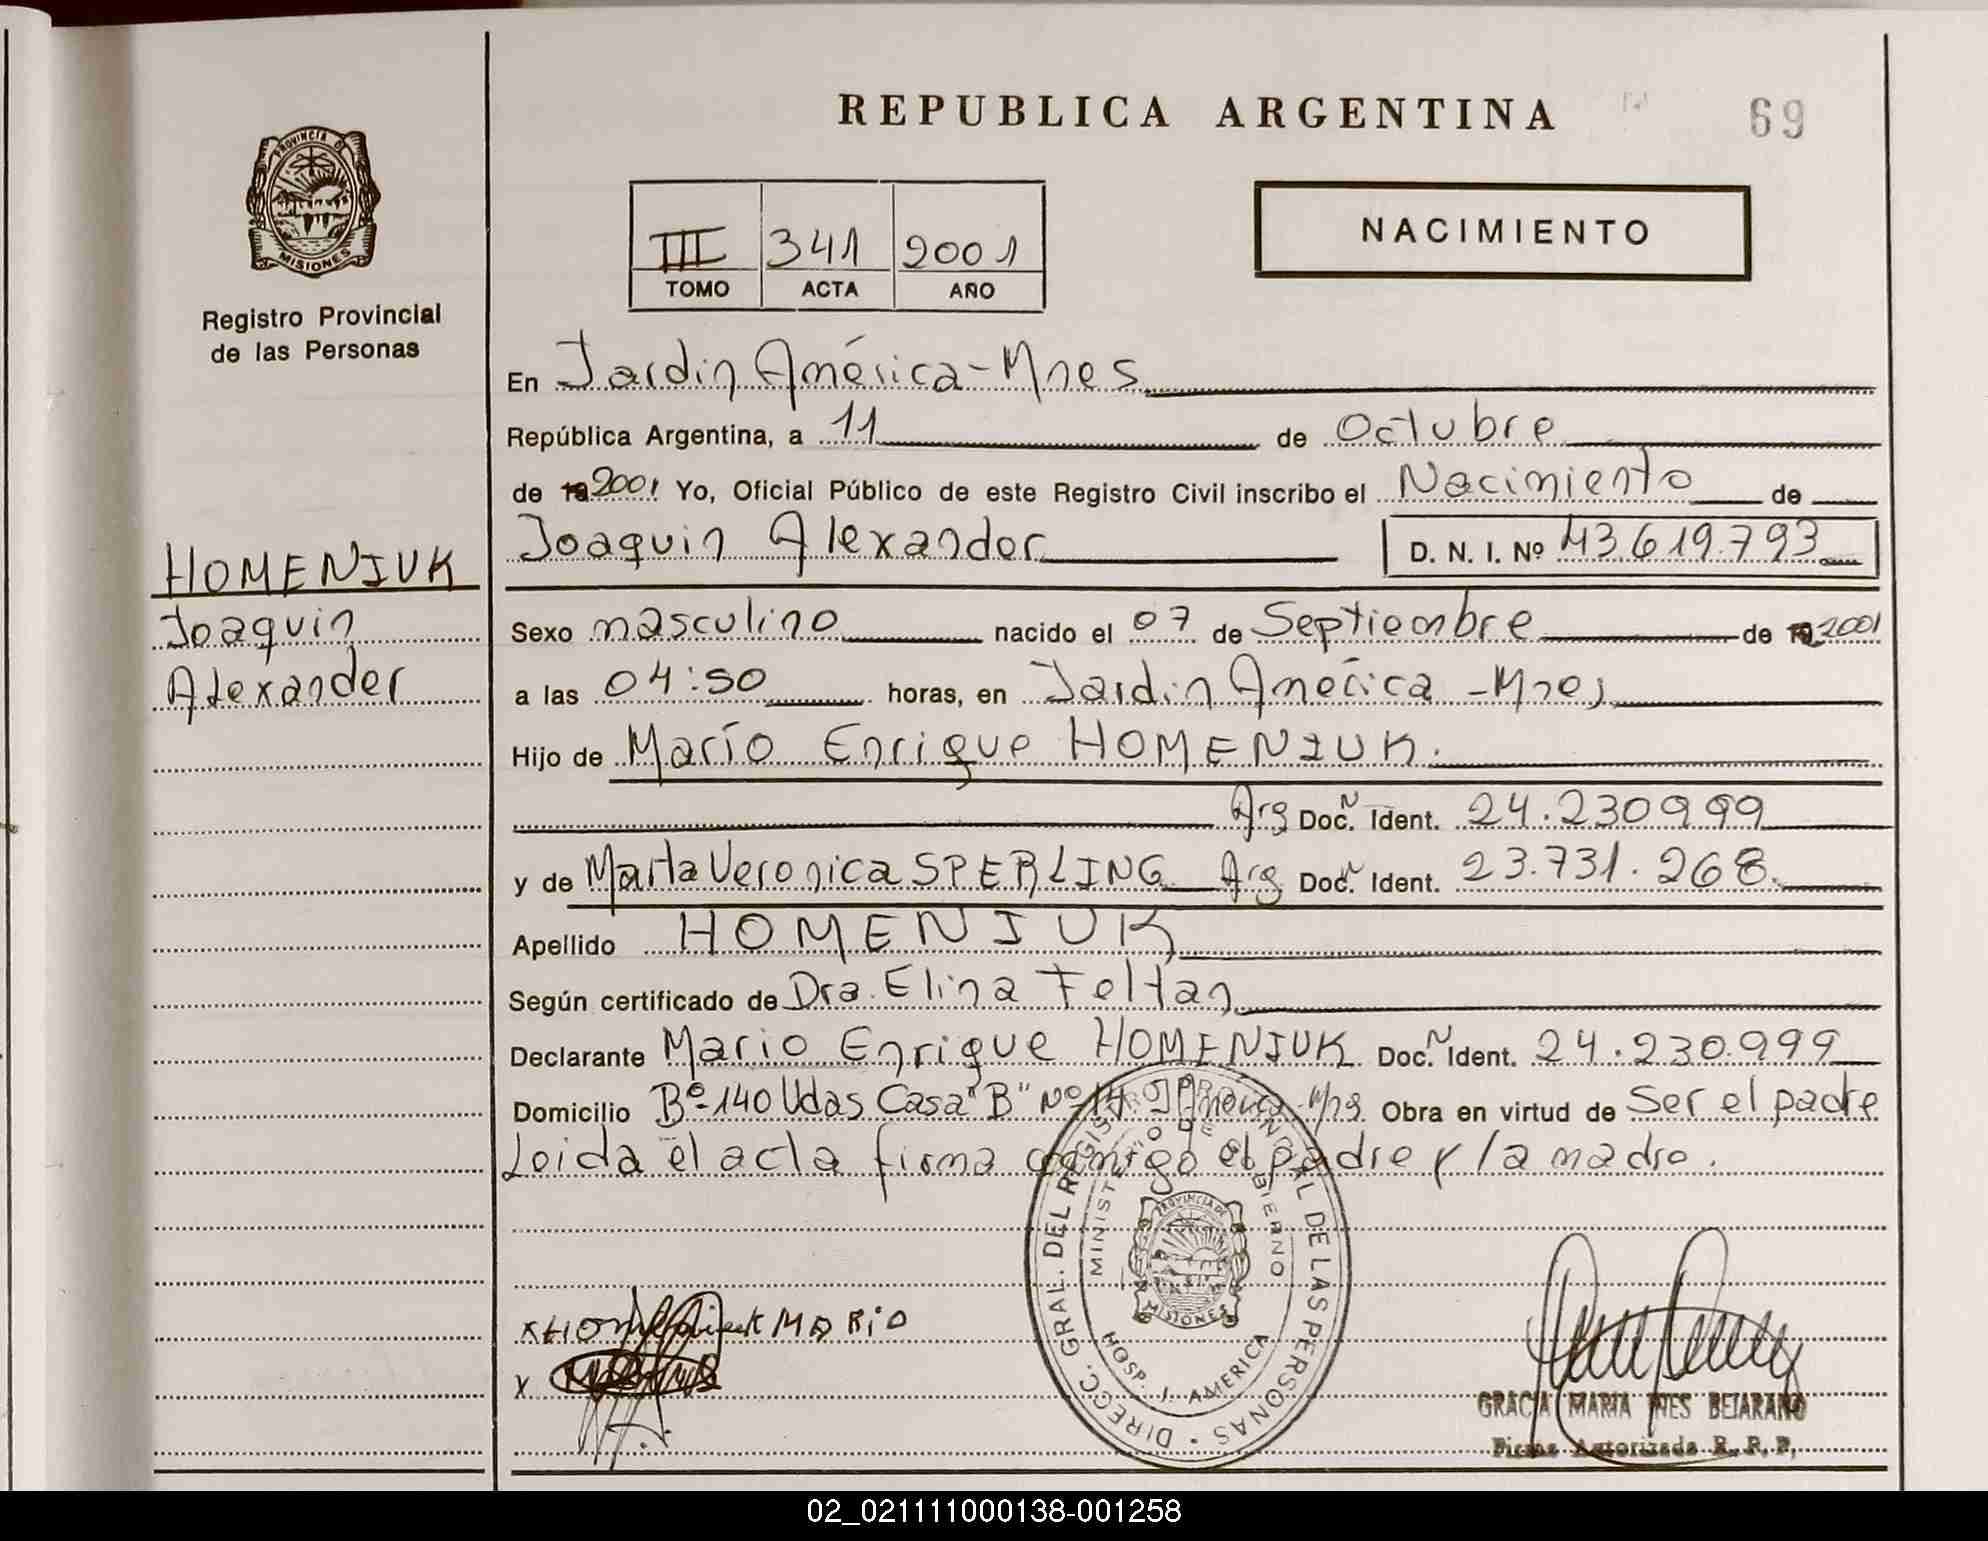 REPUBLICA ARGENTINA
69
NACIMIENTO
III 341 2001
TOMO ACTA AÑO
PROVINCIA DE
MISIONES
Registro Provincial
de las Personas
HOMENIUK
Joaquin
Alexander
En Jardin América-Mnes
República Argentina, a 11 de Octubre
de 2001 Yo, Oficial Público de este Registro Civil inscribo el Nacimiento de
Joaquin Alexander D. N. I. Nº 43.619.793
Sexo masculino nacido el 07 de Septiembre de 2001
a las 04:50 horas, en Jardin América -Mnes
Hijo de Mario Enrique HOMENIUK.
Arg Doc. N Ident. 24.230999
y de Marta Veronica SPERLING Arg Doc. N Ident. 23.731.268.
Apellido HOMENIUK
Según certificado de Dra. Elina Feltan
Declarante Mario Enrique HOMENIUK Doc. N Ident. 24.230.999
Domicilio Bº-140 Vdas Casa "B" Nº 14 J. América-Mns Obra en virtud de Ser el padre
Leida el acta firma conmigo el padre y la madre.
DIRECC. GRAL. DEL REGISTRO PROVINCIAL DE LAS PERSONAS
MINISTERIO DE GOBIERNO
PROVINCIA DE
MISIONES
HOSP. J. AMERICA
x MARIO
x
GRACIA MARIA INES BEJARANO
Firma Autorizada R. P. P.
02_021111000138-001258